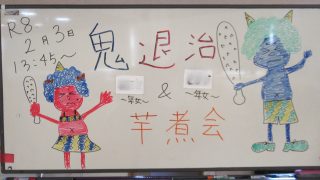 R8
2月3日
13:45～
鬼退治
～年女～
&
～年女～
芋煮会